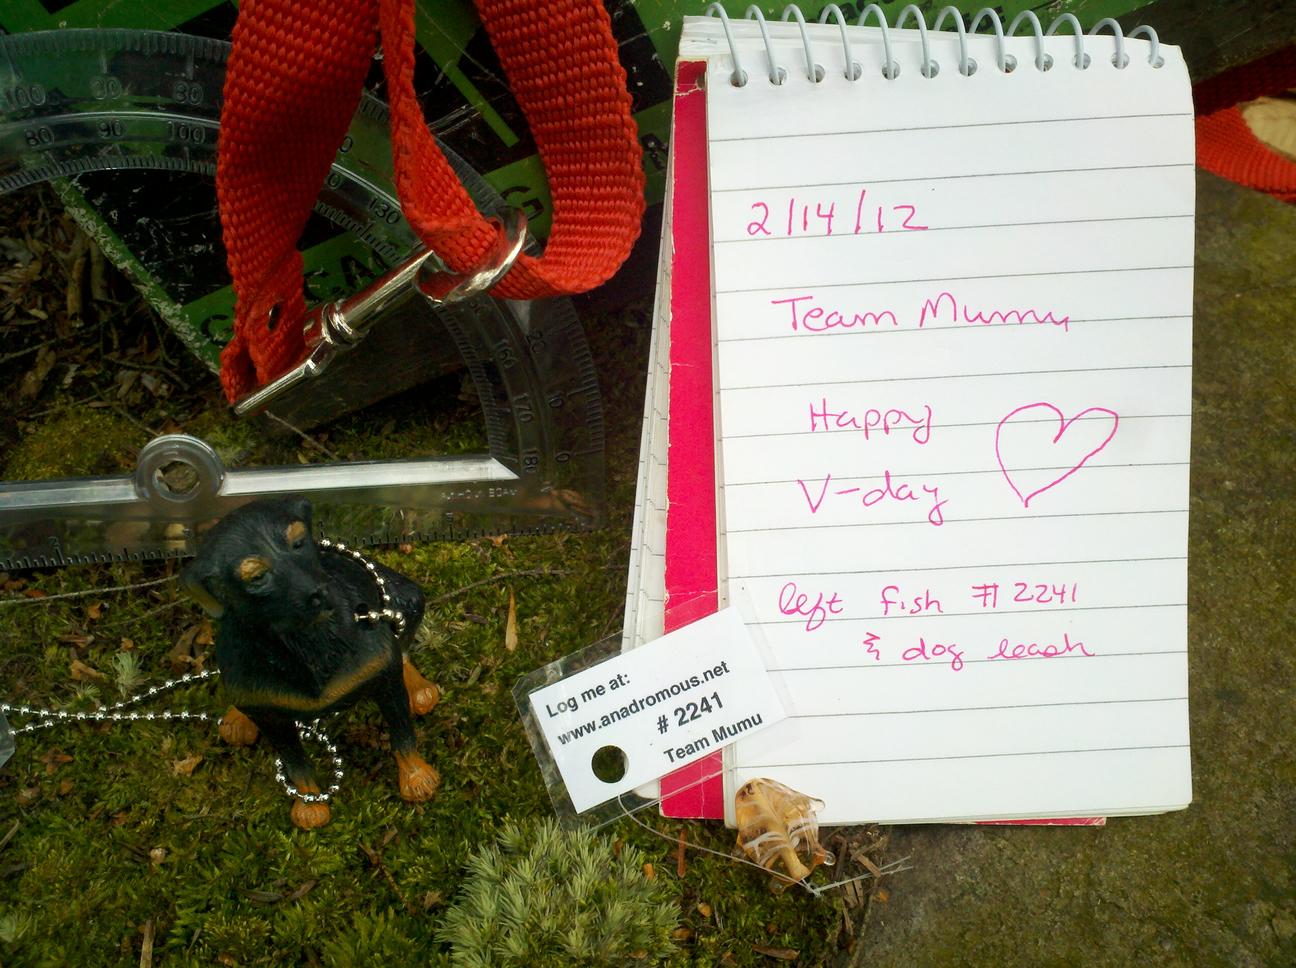 2/14/12
Team Mumu
Happy
V-day
left fish # 2241
& dog leash
Log me at:
www.anadromous.net
# 2241
Team Mumu
100 90 80
80 90 100
130
160 20
170 10
180 0